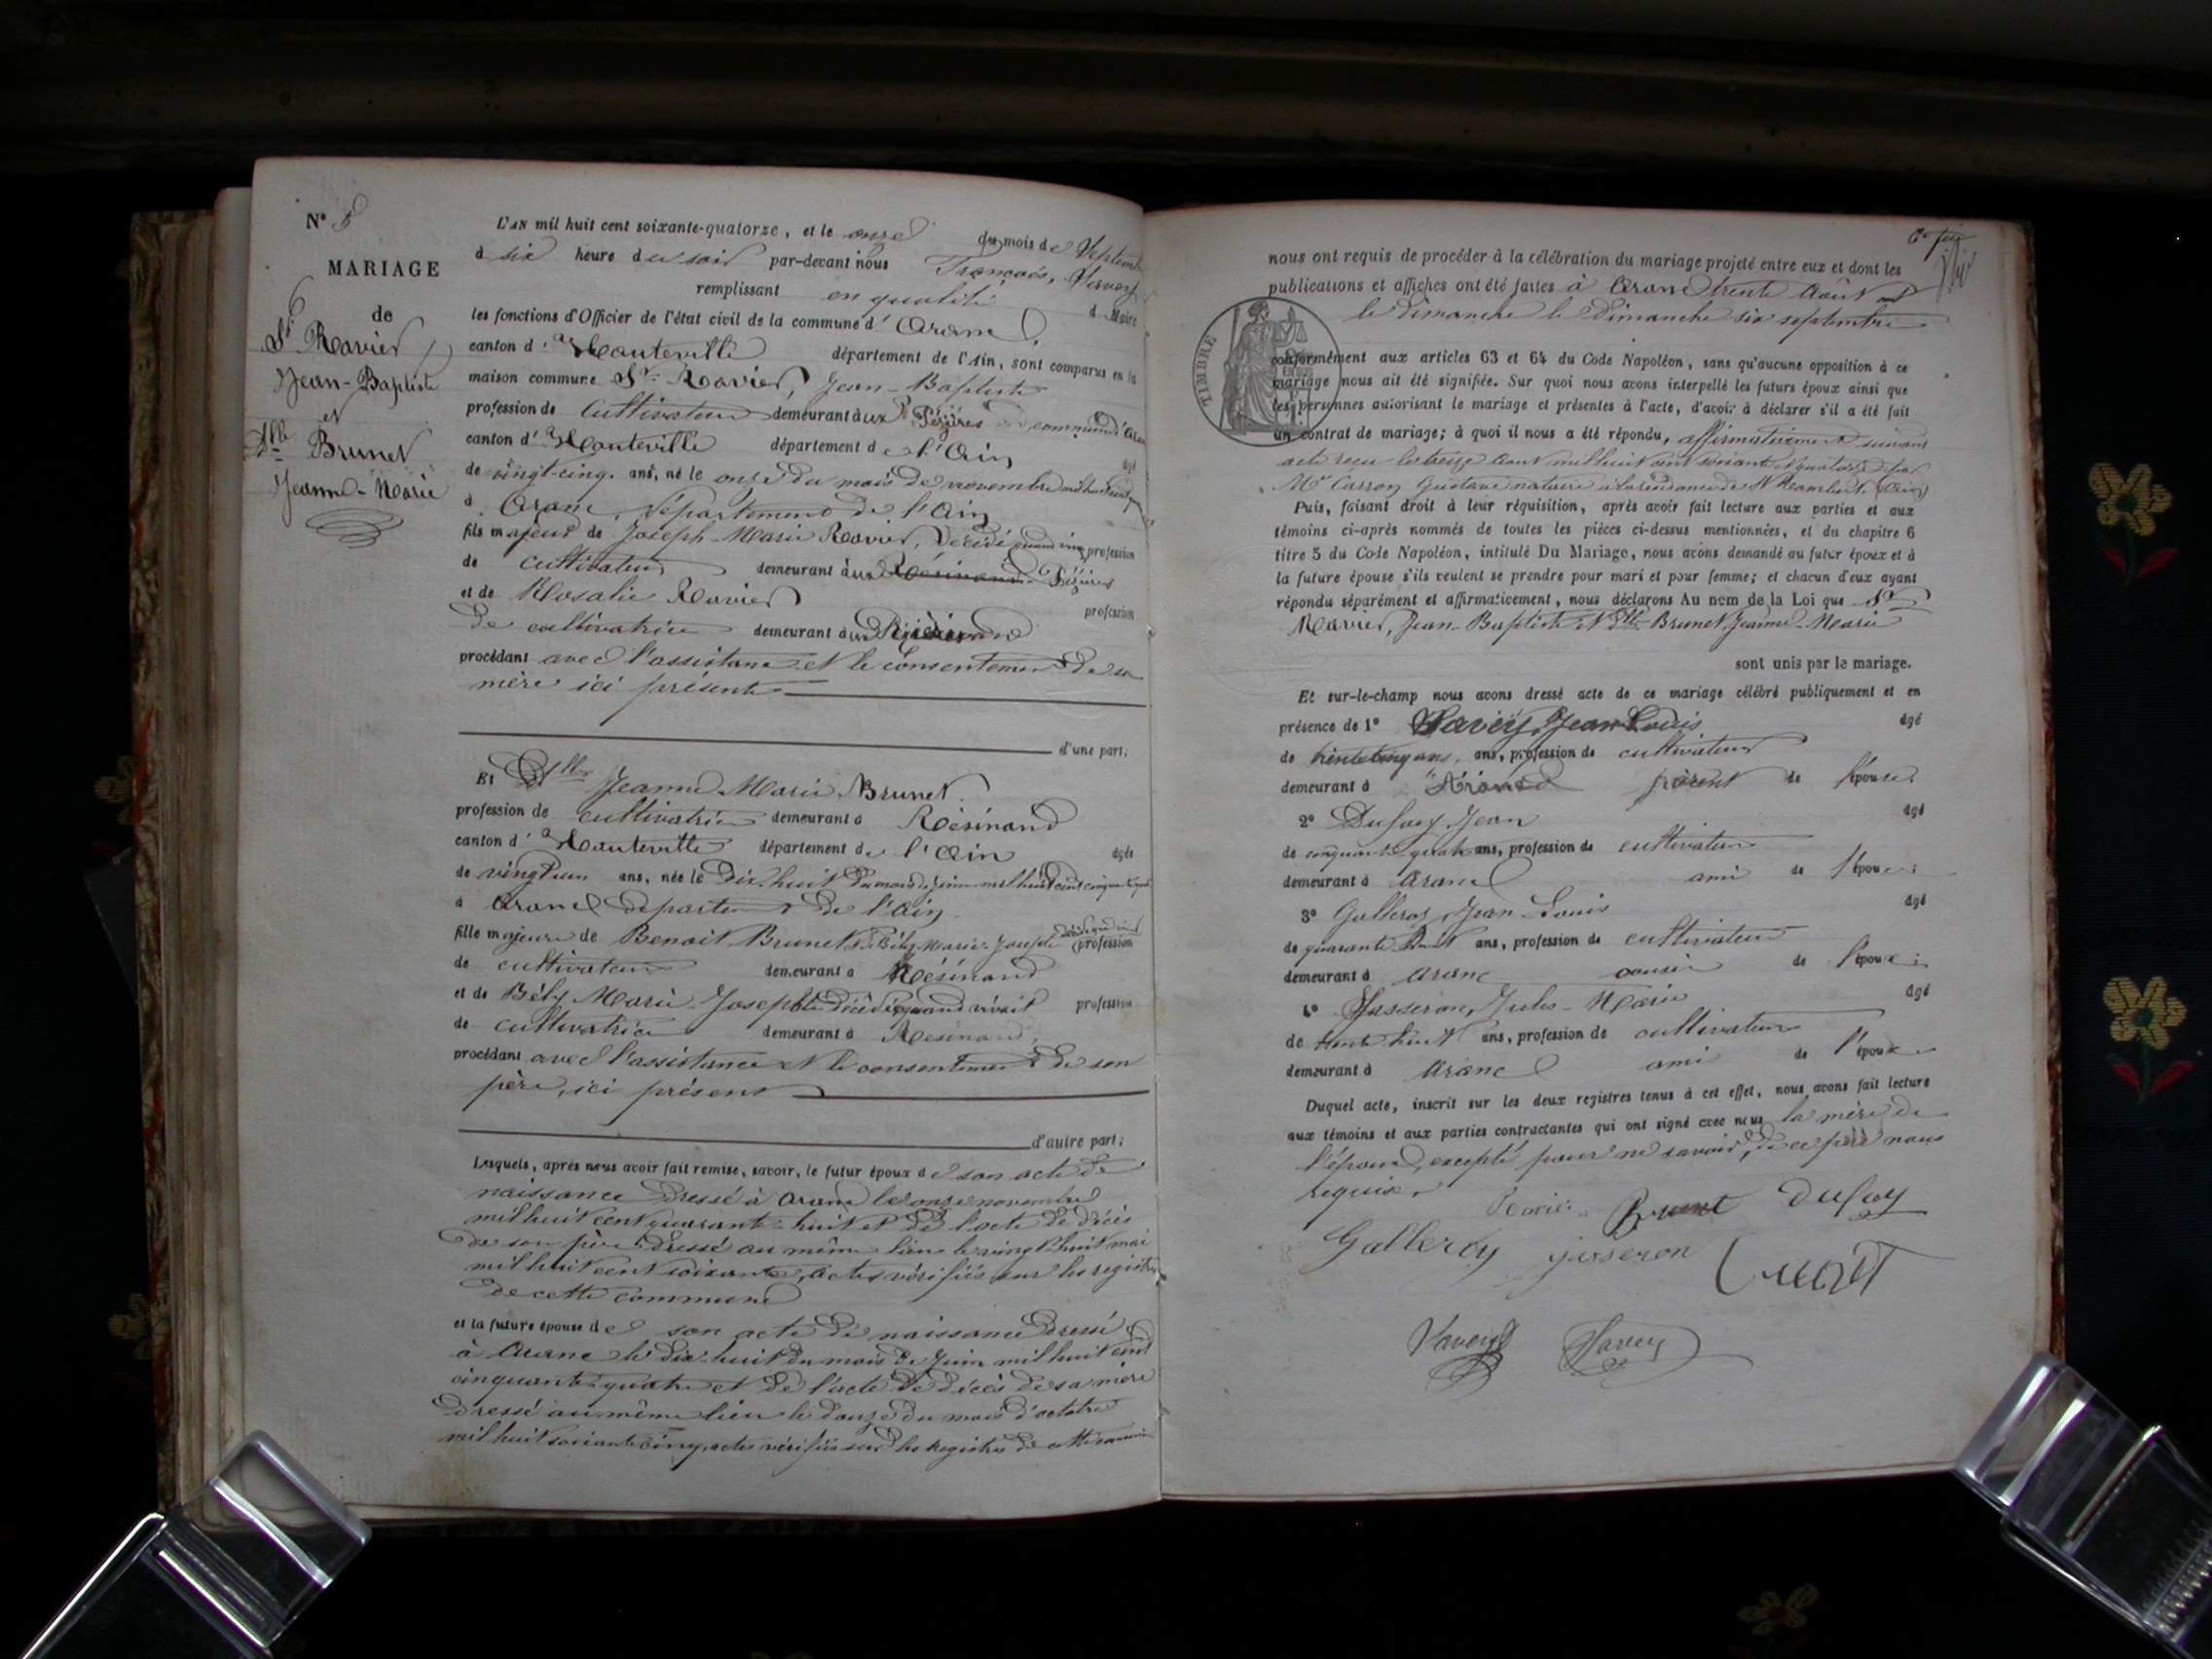 N° 5
MARIAGE
de
Sr. Ravier
Jean-Baptiste
et
Dlle Brunet
Jeanne-Marie
L'AN mil huit cent soixante-quatorze, et le onze du mois de Septembre
à six heure du soir par-devant nous François, Savey
remplissant en qualité de Maire
les fonctions d'Officier de l'état civil de la commune d' Aranc
canton d' Hauteville département de l'Ain, sont comparus en la
maison commune Sr. Ravier, Jean-Baptiste
profession de Cultivateur demeurant à aux Pézières commune d'Aranc
canton d' Hauteville département de l'Ain âgé
de vingt-cinq ans, né le onze du mois de novembre mil huit cent
à Aranc, département de l'Ain
fils majeur de Joseph-Marie Ravier, décédé quand vivait profession
de cultivateur demeurant à aux Résinand Pézières
et de Rosalie Ravier profession
de cultivatrice demeurant à Résinand
procédant avec l'assistance et le consentement de sa
mère ici présente
d'une part;
Et Dlle Jeanne Marie Brunet
profession de cultivatrice demeurant à Résinand
canton d' Hauteville département de l'Ain âgée
de vingt un ans, née le dix-huit du mois de Juin mil huit cent cinquante quatre
à Aranc département de l'Ain
fille majeure de Benoit Brunet & de Bély Marie-Josephte décédée quand vivait profession
de cultivateur demeurant à Résinand
et de Bély Marie-Josephte décédée quand vivait profession
de cultivatrice demeurant à Résinand,
procédant avec l'assistance et le consentement de son
père, ici présent
d'autre part;
Lesquels, après nous avoir fait remise, savoir, le futur époux de son acte de
naissance dressé à Aranc le onze novembre
mil huit cent quarante-huit et de l'acte de décès
de son père dressé au même lieu le vingt-huit mai
mil huit cent soixante, actes vérifiés sur les registres
de cette commune
et la future épouse de son acte de naissance dressé
à Aranc le dix-huit du mois de Juin mil huit cent
cinquante-quatre et de l'acte de décès de sa mère
dressé au même lieu le douze du mois d'octobre
mil huit soixante cinq, actes vérifiés sur les Registres de cette commune
nous ont requis de procéder à la célébration du mariage projeté entre eux et dont les
publications et affiches ont été faites à Aranc trente Août et
le dimanche le Dimanche six septembre
TIMBRE
conformément aux articles 63 et 64 du Code Napoléon, sans qu'aucune opposition à ce
mariage nous ait été signifiée. Sur quoi nous avons interpellé les futurs époux ainsi que
les personnes autorisant le mariage et présentes à l'acte, d'avoir à déclarer s'il a été fait
un contrat de mariage; à quoi il nous a été répondu, affirmativement suivant
acte reçu le treize août mil huit cent soixante et quatorze par
Me Carron Gustave notaire à la résidence de St Rambert (Ain)
Puis, faisant droit à leur réquisition, après avoir fait lecture aux parties et aux
témoins ci-après nommés de toutes les pièces ci-dessus mentionnées, et du chapitre 6
titre 5 du Code Napoléon, intitulé Du Mariage, nous avons demandé au futur époux et à
la future épouse s'ils veulent se prendre pour mari et pour femme; et chacun d'eux ayant
répondu séparément et affirmativement, nous déclarons Au nom de la Loi que Sr
Ravier, Jean-Baptiste et Dlle Brunet, Jeanne-Marie
sont unis par le mariage.
Et sur-le-champ nous avons dressé acte de ce mariage célébré publiquement et en
présence de 1° Savey, Jean-Louis âgé
de trente cinq ans, ans, profession de cultivateur
demeurant à Aranc parent de l'épouse;
2° Dufour Jean âgé
de cinquante quatre ans, profession de cultivateur
demeurant à Aranc ami de l'époux;
3° Galleroy, Jean Louis âgé
de quarante huit ans, profession de cultivateur
demeurant à Aranc cousin de l'époux;
4° Josseron, Jules-Marie âgé
de trente huit ans, profession de cultivateur
demeurant à Aranc ami de l'époux
Duquel acte, inscrit sur les deux registres tenus à cet effet, nous avons fait lecture
aux témoins et aux parties contractantes qui ont signé avec nous la mère de
l'époux, excepté pour ne savoir, de ce par nous
requise
Ravier Brunet Dufour
Galleroy josseron Brunet
Savey Savey